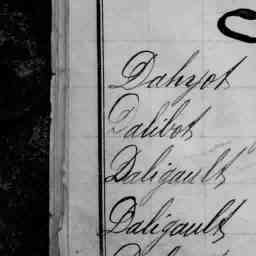 Dahyot
Dalibot
Daligault
Daligault